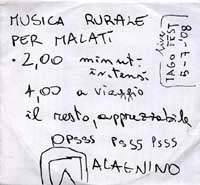 MUSICA RURALE
PER MALATI
• 2,00 minuti
intensi
4,00 a viaggio
il resto, apprezzabile
OPSSS PSSS PSSS
ALAGNINO
live
TAGO FEST
5-7-'08